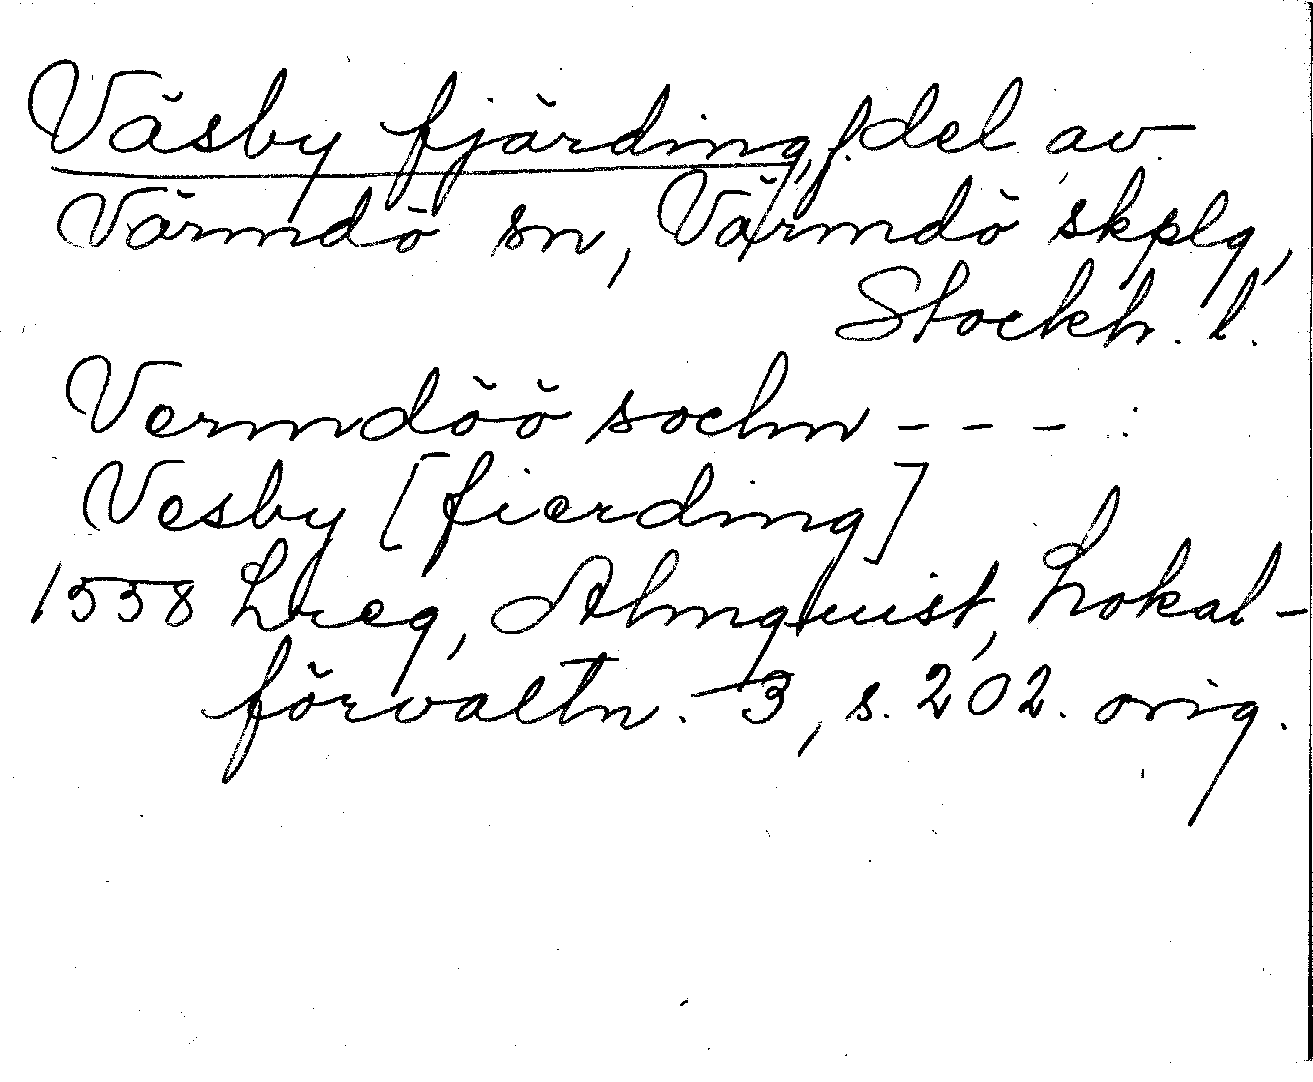 Väsby fjärding, f. del av
Värmdö sn, Värmdö skplg,
Stockh. l.
Vermdöö sochn - - - :
Vesby [fierding]
1558 Lreg, Almquist, Lokal-
förvaltn. 3, s. 202. orig.